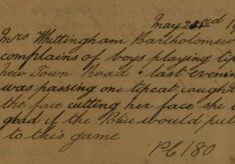 May 23rd 19
Mrs Whittingham Bartholomew
complains of boys playing tip
hew Town Road. last evening
was passing one tipcat caught
the face cutting her face she i
glad if the Police would put
to this game
PC 180